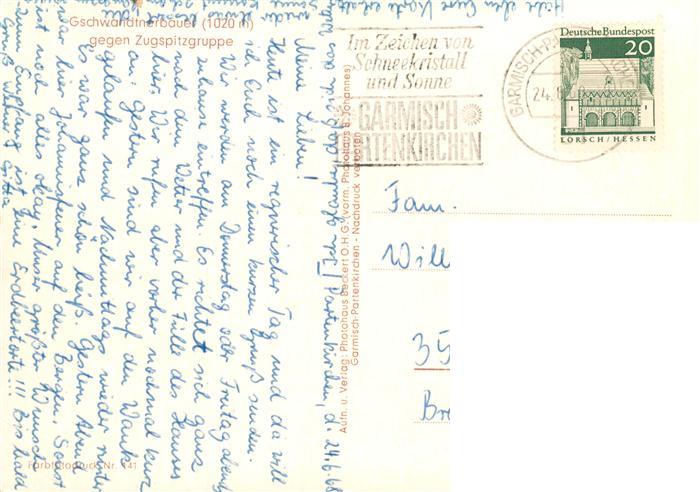 Gschwandtnerbauer (1020 m)
gegen Zugspitzgruppe
Partenkirchen, d. 24.6.68
Meine Lieben!
Heute ist ein regnerischer Tag und da will
ich Euch noch einen kurzen Gruß senden.
Wir werden am Donnerstag oder Freitag abend
zuhause eintreffen. Es richtet sich ganz
nach dem Wetter und der Fülle des Hauses
an. Wir rufen aber vorher nochmal kurz
an. Gestern sind wir auf den Wank
gelaufen und Nachmittags wieder runter
Es war ganz schön heiß. Gestern Abend
war hier Johannisfeuer auf den Bergen. Sonst
ist noch alles okay. Unser größter Wunsch
zum Empfang ist eine Erdbeertorte!!! Bis bald
Gruß Werner & Gitta
Farbfotodruck Nr. 141
Aufn. u. Verlag: Photohaus Beckert O.H.G. (vorm. Photohaus B. Johannes)
Garmisch-Partenkirchen - Nachdruck verboten
Im Zeichen von
Schneekristall
und Sonne
GARMISCH
PARTENKIRCHEN
GARMISCH-PA
24.
Deutsche Bundespost
20
LORSCH/HESSEN
Fam.
Will
35
Bre